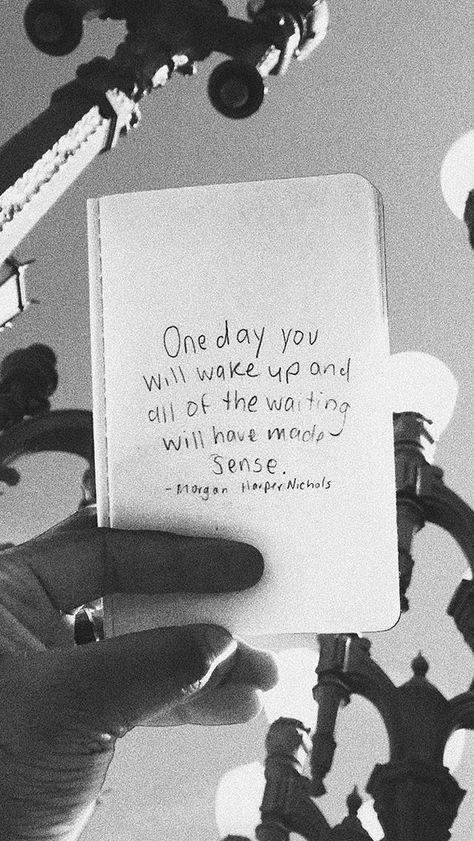 One day you
will wake up and
all of the waiting
will have made
sense.
- Morgan Harper Nichols